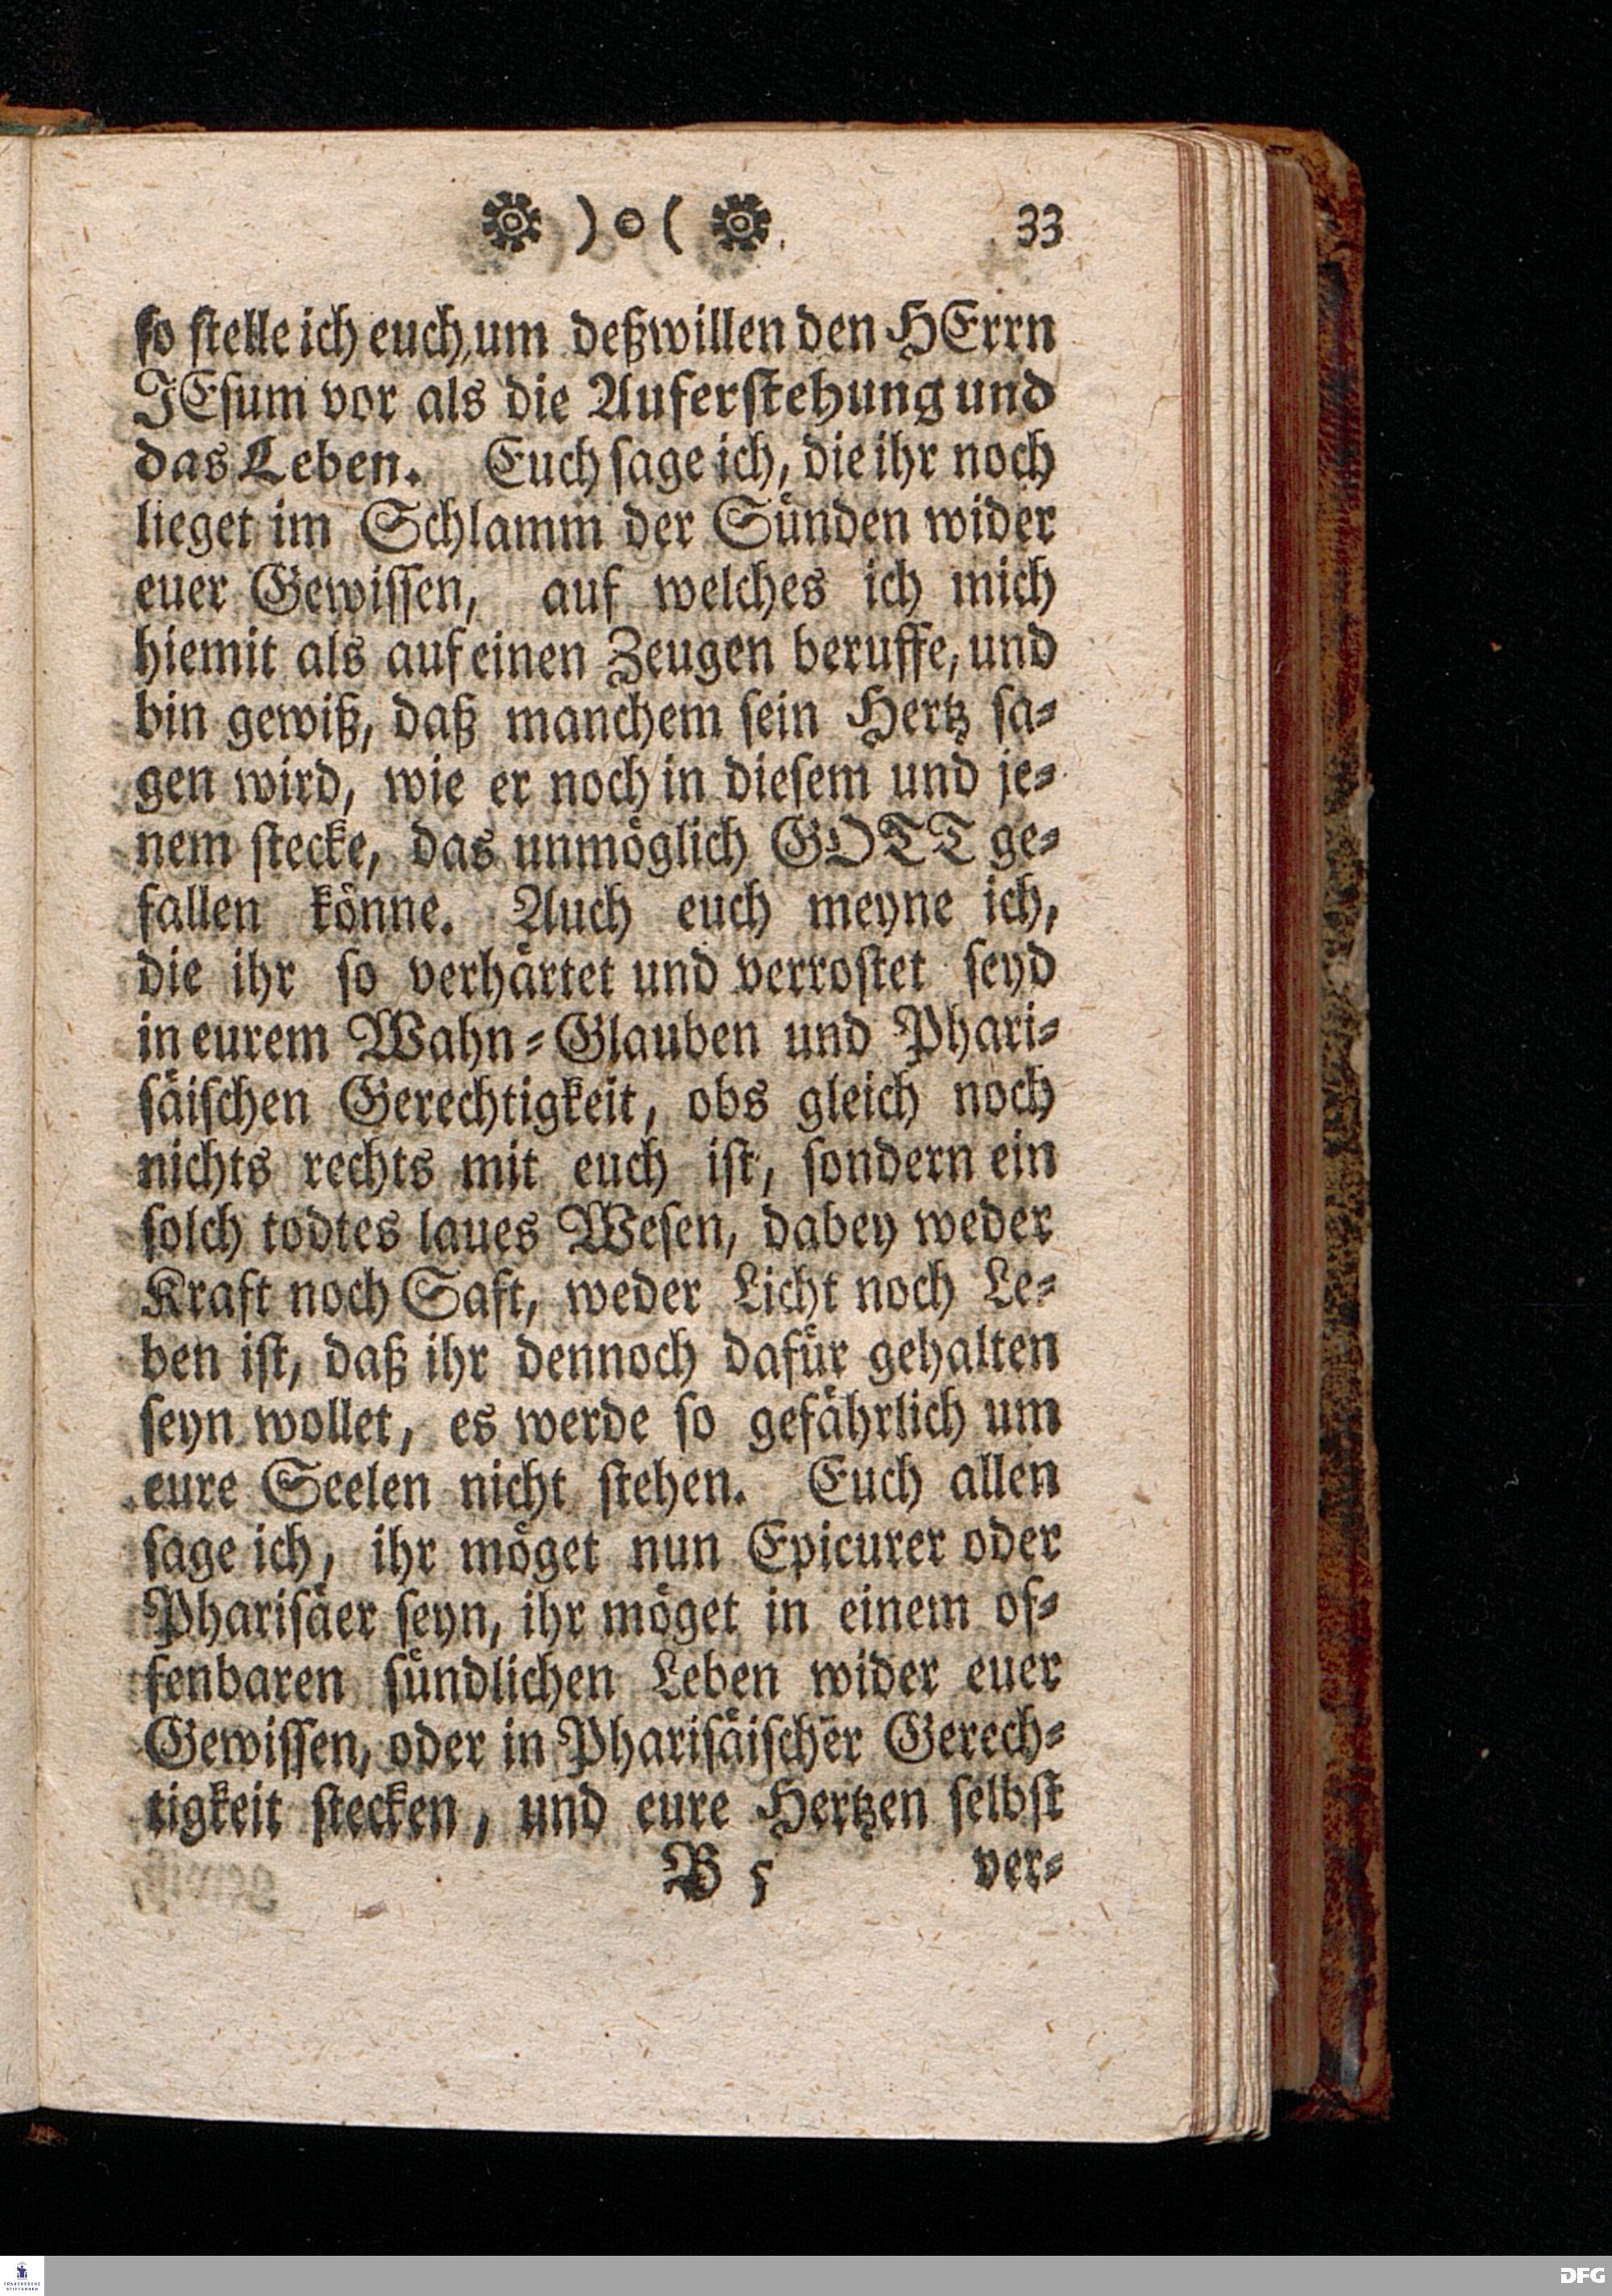 ) o ( 33
so stelle ich euch um deßwillen den HErrn
JEsum vor als die Auferstehung und
das Leben. Euch sage ich, die ihr noch
lieget im Schlamm der Sünden wider
euer Gewissen, auf welches ich mich
hiemit als auf einen Zeugen beruffe, und
bin gewiß, daß manchem sein Hertz sa-
gen wird, wie er noch in diesem und je-
nem stecke, das unmöglich GOTT ge-
fallen könne. Auch euch meyne ich,
die ihr so verhärtet und verrostet seyd
in eurem Wahn-Glauben und Phari-
säischen Gerechtigkeit, obs gleich noch
nichts rechts mit euch ist, sondern ein
solch todtes laues Wesen, dabey weder
Kraft noch Saft, weder Licht noch Le-
ben ist, daß ihr dennoch dafür gehalten
seyn wollet, es werde so gefährlich um
eure Seelen nicht stehen. Euch allen
sage ich, ihr möget nun Epicurer oder
Pharisäer seyn, ihr möget in einem of-
fenbaren sündlichen Leben wider euer
Gewissen, oder in Pharisäischer Gerech-
tigkeit stecken, und eure Hertzen selbst
B 5 ver-
FRANCKESCHE
STIFTUNGEN
DFG